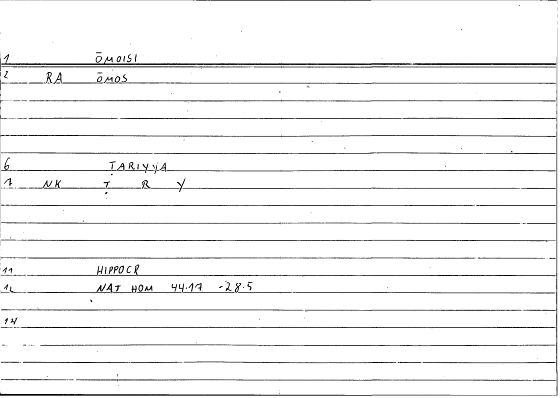 1 ŌMOISI
2 RA ŌMOS
6 ṬARIYYA
7 NK Ṭ R Y
11 HIPPOCR
12 NAT HOM 44.17 -28.5
14